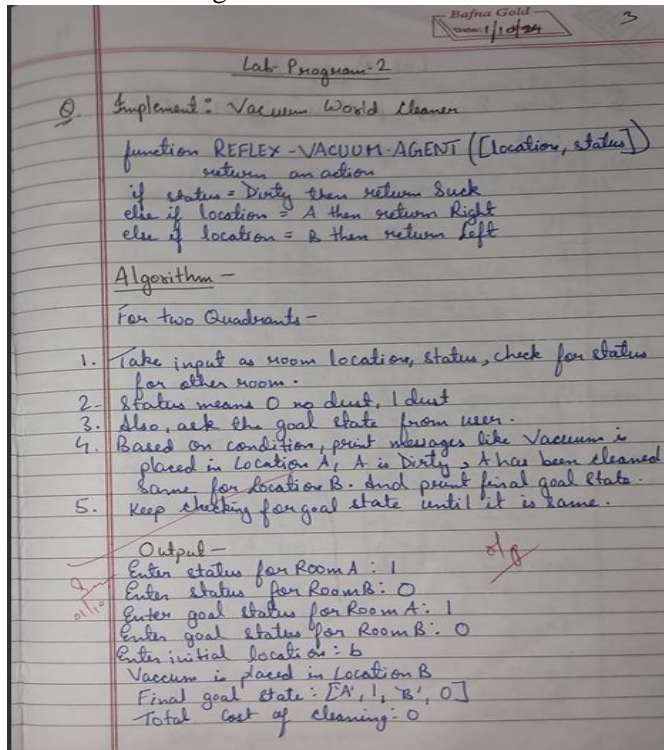 Bafna Gold
Date: 1/10/24
3
Lab-Program-2
Q. Implement: Vacuum World Cleaner
function REFLEX-VACUUM-AGENT ([location, status])
return an action
if status = Dirty then return Suck
else if location = A then return Right
else if location = B then return Left
Algorithm -
For two Quadrants -
1. Take input as room location, status, check for status
for other room.
2- Status means 0 no dust, 1 dust
3. Also, ask the goal state from user.
4. Based on condition, print messages like Vacuum is
placed in Location A, A is Dirty, A has been cleaned
Same for location B. And print final goal state.
5. Keep checking for goal state until it is same.
Output -
o/p
Enter status for Room A : 1
Enter status for Room B : 0
01/10
Enter goal status for Room A: 1
Enter goal status for Room B: 0
Enter initial location : b
Vaccum is placed in Location B
Final goal state : ['A', 1, 'B', 0]
Total cost of cleaning: 0